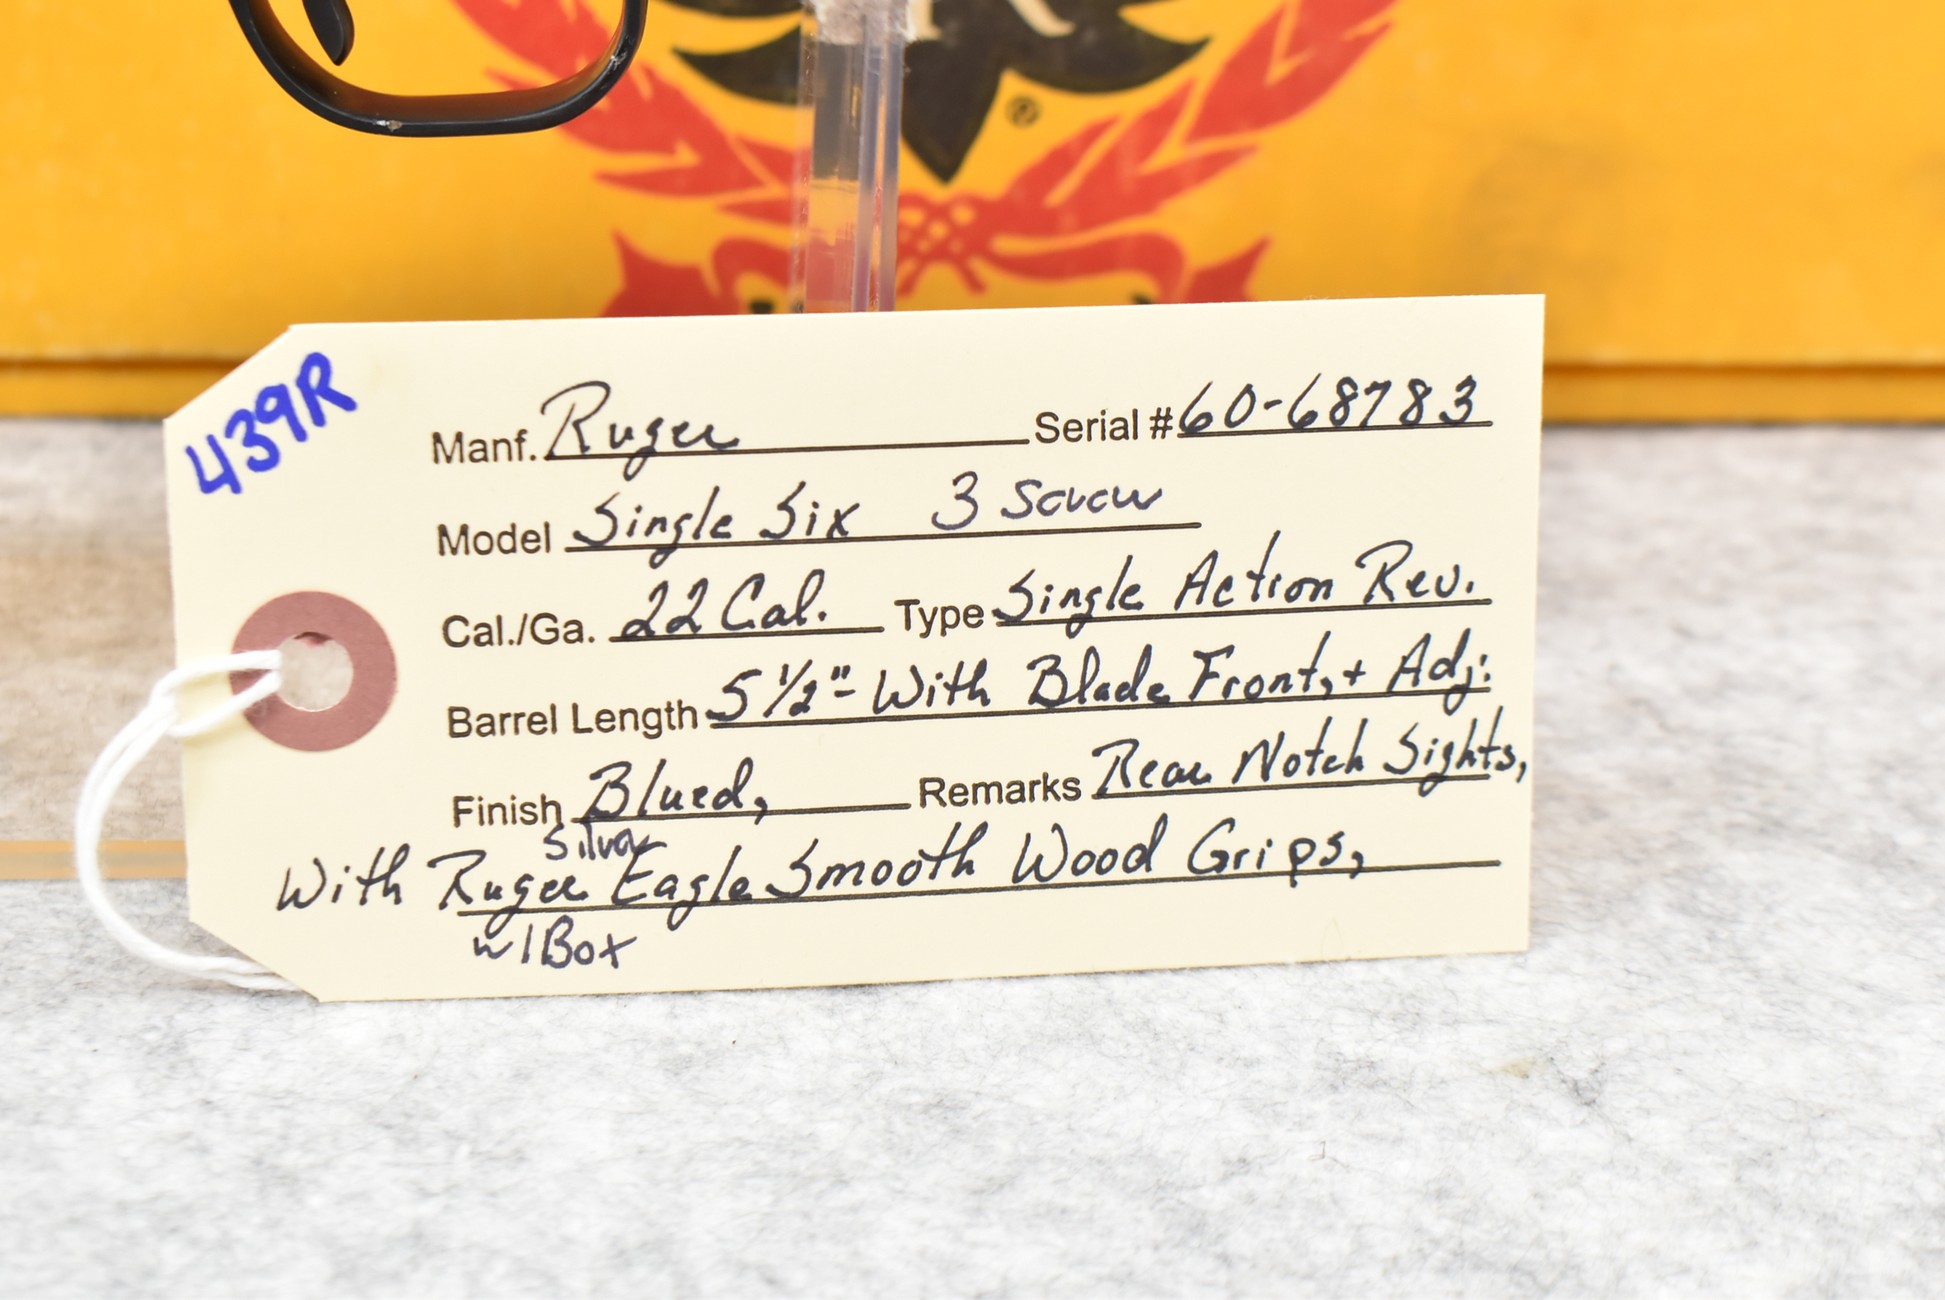 R
®
439R
Manf. Ruger Serial # 60-68783
Model Single Six 3 Screw
Cal./Ga. 22 Cal. Type Single Action Rev.
Barrel Length 5 1/2"- With Blade Front, + Adj.
Finish Blued, Remarks Rear Notch Sights,
Silver
With Ruger Eagle Smooth Wood Grips,
w/Box